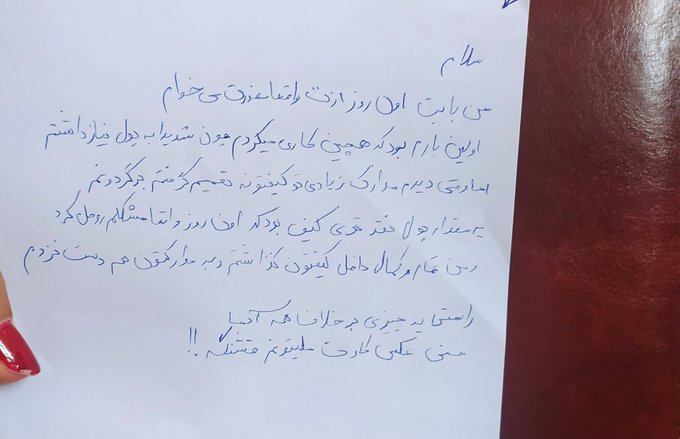 سلام
من بابت اون روز ازت واقعا معذرت می خوام
اولین بارم بود که همچین کاری میکردم چون شدیدا به پول نیاز داشتم
اما وقتی دیدم مدارک زیادی تو کیفتونه تصمیم گرفتم برگردونم
یه مقدار پول نقد توی کیف بود که اون روز واقعا مشکلم رو حل کرد
من تمام و کمال داخل کیفتون گذاشتم و به مدارکتون هم دست نزدم
راستی یه چیزی بر خلاف همه آدما
حتی عکس کارت ملیتونم قشنگه !!